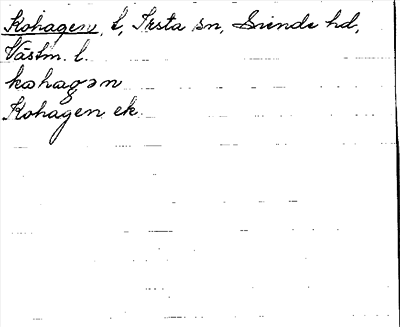 Kohagen, t, Irsta sn, Siende hd,
Västm. l.
kohagən
Kohagen ek.